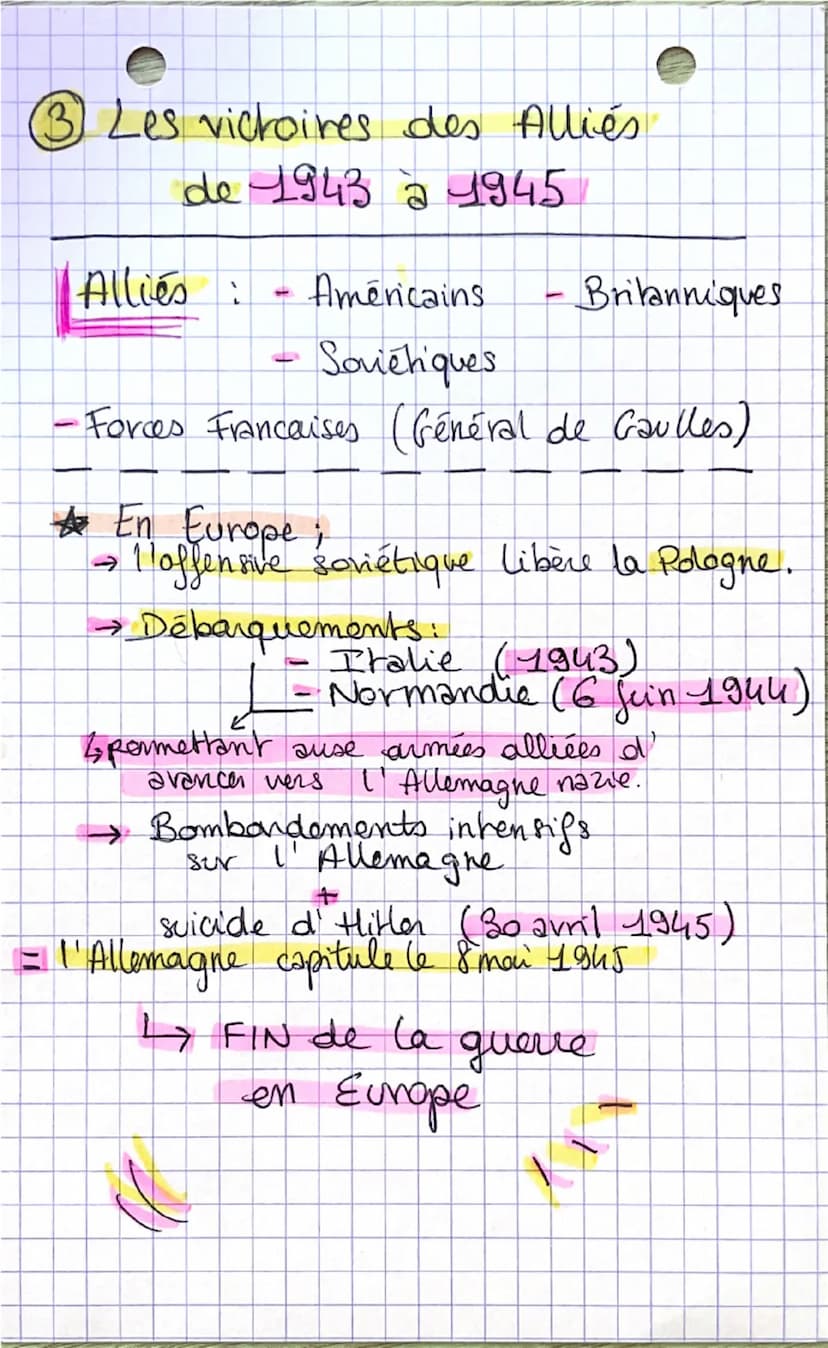 ③ Les victoires des Alliés
de 1943 à 1945
Alliés : - Américains - Britanniques
- Soviétiques
- Forces Francaises (Général de Gaulles)
☆ En Europe ;
→ l'offensive soviétique libère la Pologne.
→ Débarquements :
- Italie (1943)
- Normandie (6 juin 1944)
↳ permettant aux armées alliées d'
avancer vers l'Allemagne nazie.
→ Bombardements intensifs
sur l'Allemagne
+
suicide d'Hitler (30 avril 1945)
= l'Allemagne capitule le 8 mai 1945
↳ FIN de la guerre
en Europe